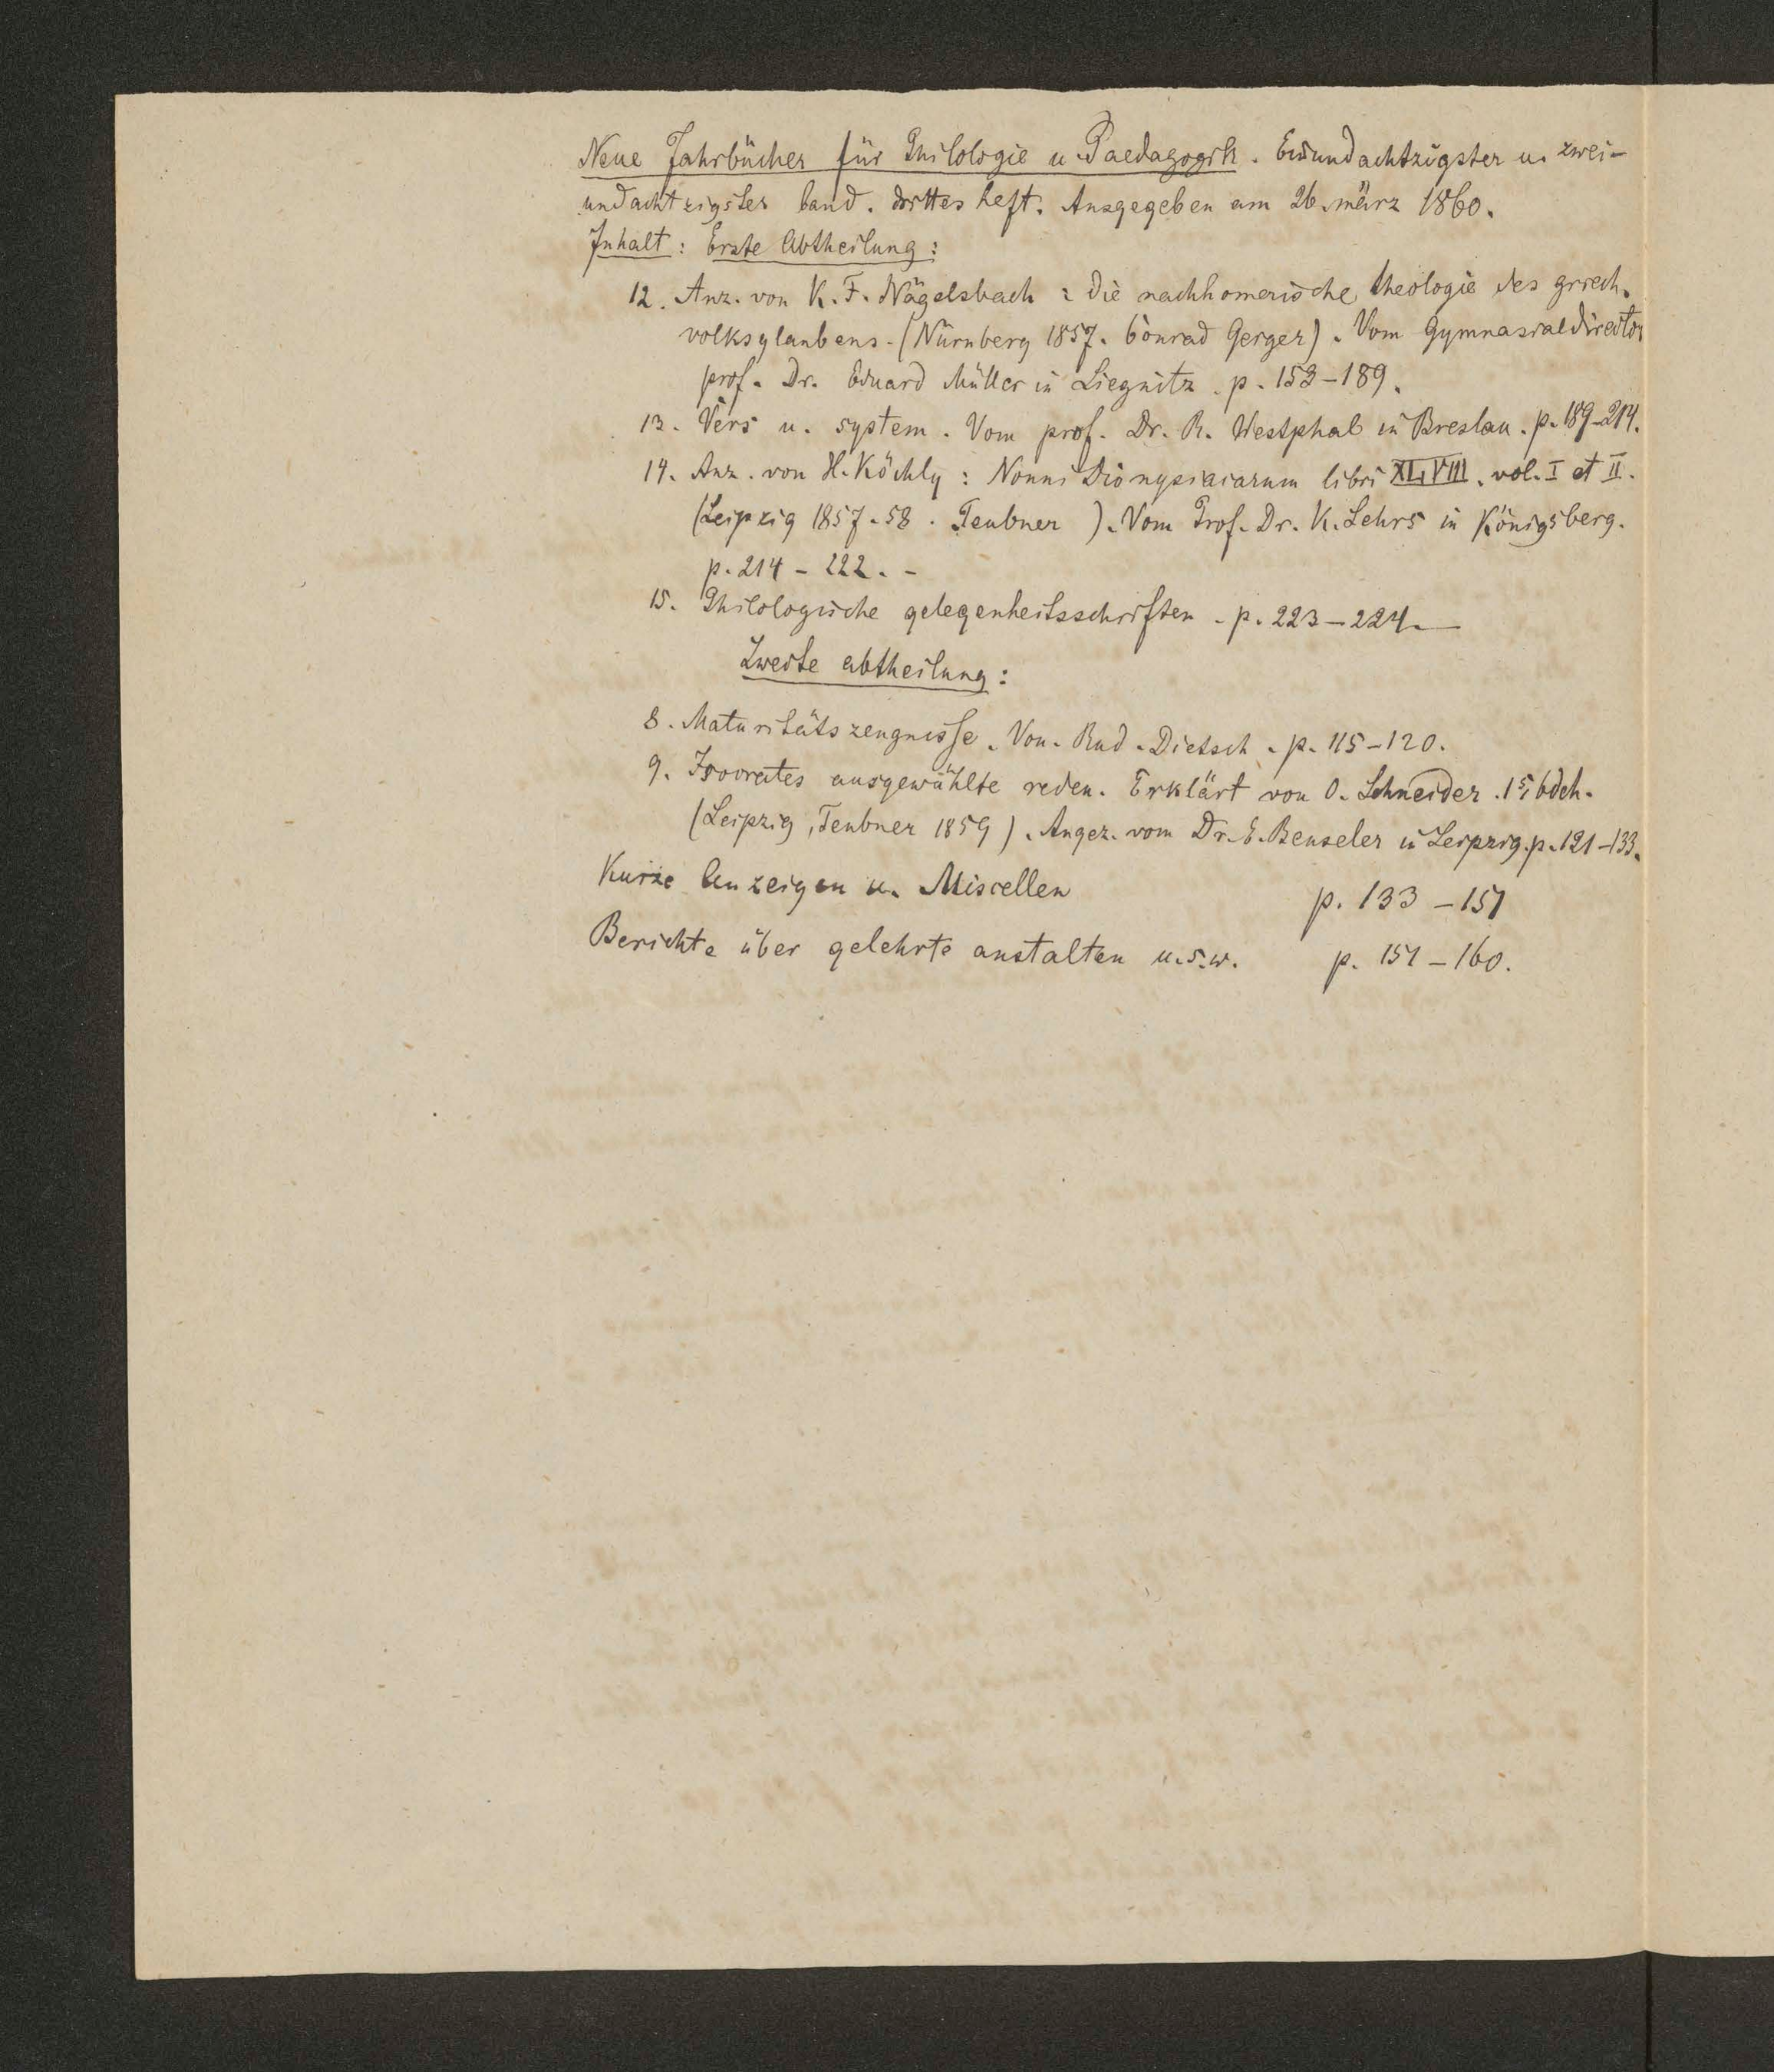 Neue Jahrbücher für Philologie u. Paedagogik. Einundachtzigster u. zwei-
undachtzigster band. drittes heft. Ausgegeben am 26. märz 1860.
Inhalt: Erste Abtheilung:
12. Anz. von K. F. Nägelsbach: die nachhomerische theologie des griech.
volksglaubens. (Nürnberg 1857. Conrad Gerger). Vom Gymnasialdirector
prof. Dr. Eduard Müller in Liegnitz. p. 153-189.
13. Vers u. system. Vom prof. Dr. R. Westphal in Breslau. p. 189-214.
14. Anz. von H. Köchly: Nonni Dionysiacarum libri XLVIII. vol. I et II.
(Leipzig 1857-58. Teubner). Vom Prof. Dr. K. Lehrs in Königsberg.
p. 214-222. -
15. Philologische gelegenheitsschriften. p. 223-224. —
Zweite abtheilung:
8. Maturitätszeugnisse. Von Rud. Dietsch. p. 115-120.
9. Isocrates ausgewählte reden. Erklärt von O. Schneider. 1s bdch.
(Leipzig, Teubner 1859). Angez. vom Dr. E. Benseler in Leipzig. p. 121-133.
Kurze Anzeigen u. Miscellen p. 133-151
Berichte über gelehrte anstalten u.s.w. p. 151-160.